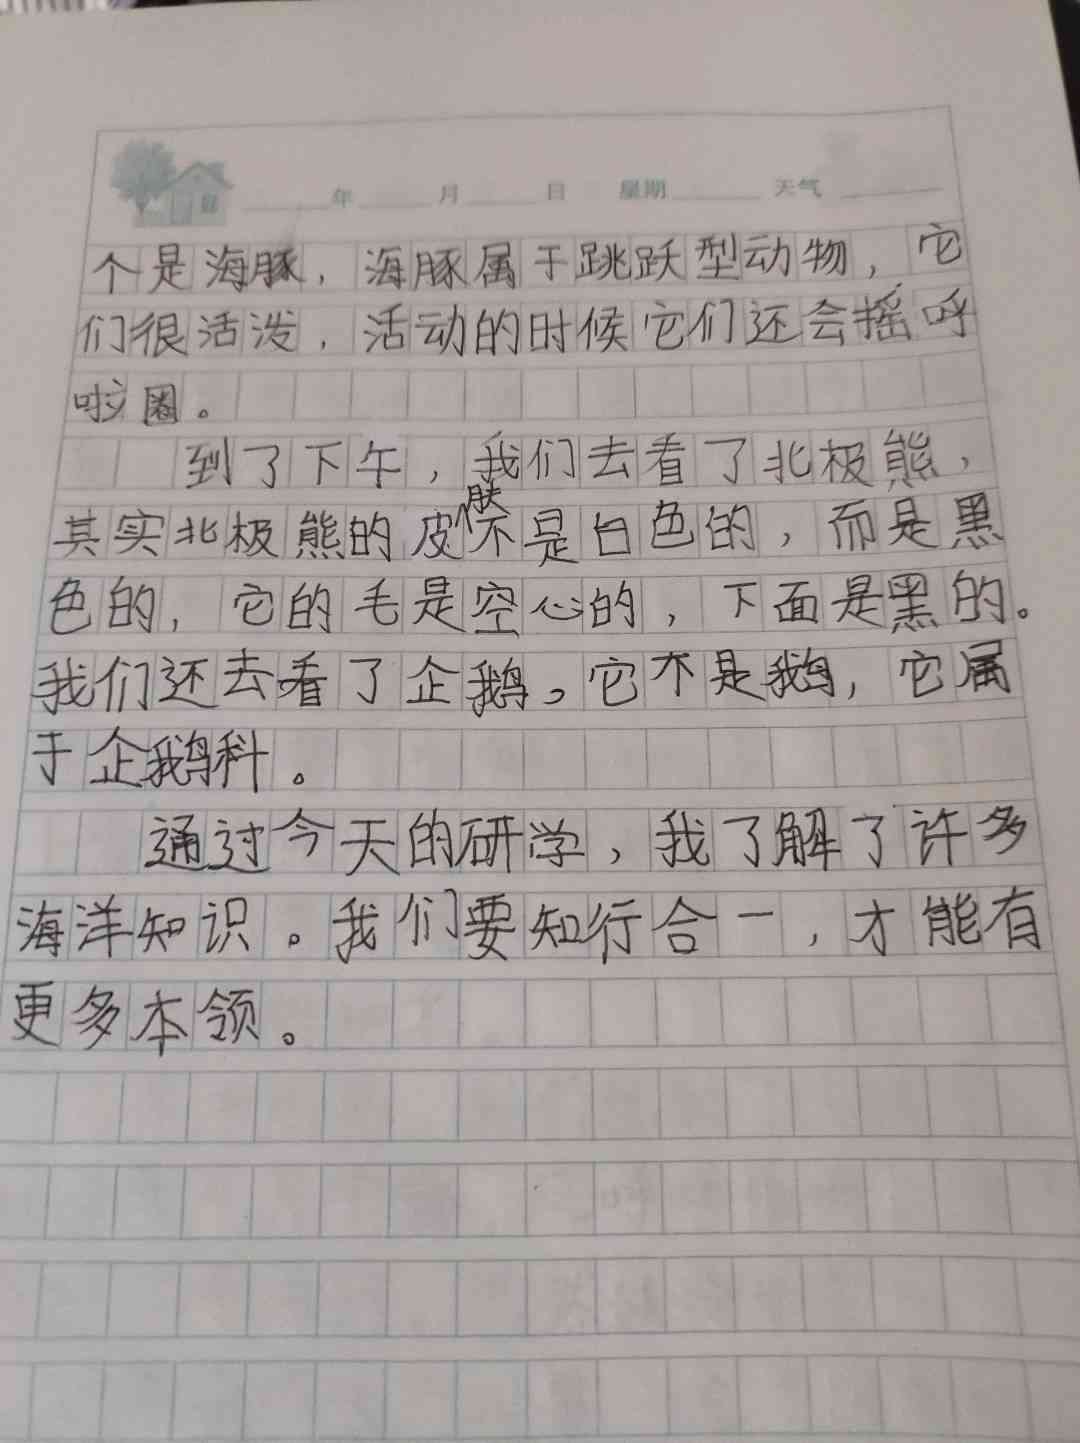 年 月 日 星期 天气
个是海豚，海豚属于跳跃型动物，它
们很活泼，活动的时候它们还会摇呼
啦圈。
到了下午，我们去看了北极熊，
其实北极熊的皮肤不是白色的，而是黑
色的，它的毛是空心的，下面是黑的。
我们还去看了企鹅。它不是鹅，它属
于企鹅科。
通过今天的研学，我了解了许多
海洋知识。我们要知行合一，才能有
更多本领。